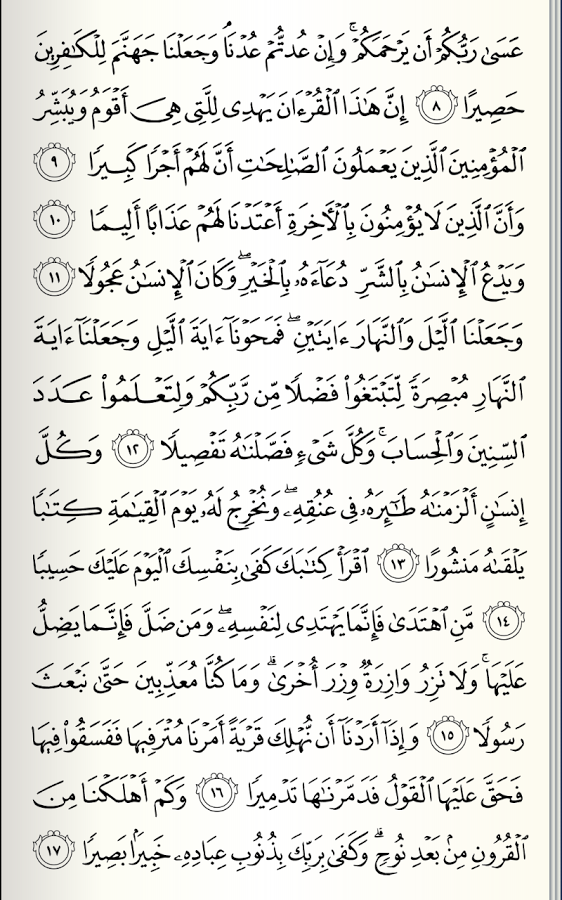 عَسَىٰ رَبُّكُمْ أَن يَرْحَمَكُمْ ۚ وَإِنْ عُدتُّمْ عُدْنَا ۘ وَجَعَلْنَا جَهَنَّمَ لِلْكَٰفِرِينَ
حَصِيرًا ٨ إِنَّ هَٰذَا ٱلْقُرْءَانَ يَهْدِى لِلَّتِى هِىَ أَقْوَمُ وَيُبَشِّرُ
ٱلْمُؤْمِنِينَ ٱلَّذِينَ يَعْمَلُونَ ٱلصَّٰلِحَٰتِ أَنَّ لَهُمْ أَجْرًا كَبِيرًا ٩
وَأَنَّ ٱلَّذِينَ لَا يُؤْمِنُونَ بِٱلْءَاخِرَةِ أَعْتَدْنَا لَهُمْ عَذَابًا أَلِيمًا ١٠
وَيَدْعُ ٱلْإِنسَٰنُ بِٱلشَّرِّ دُعَآءَهُۥ بِٱلْخَيْرِ ۖ وَكَانَ ٱلْإِنسَٰنُ عَجُولًا ١١
وَجَعَلْنَا ٱلَّيْلَ وَٱلنَّهَارَ ءَايَتَيْنِ ۖ فَمَحَوْنَآ ءَايَةَ ٱلَّيْلِ وَجَعَلْنَآ ءَايَةَ
ٱلنَّهَارِ مُبْصِرَةً لِّتَبْتَغُوا۟ فَضْلًا مِّن رَّبِّكُمْ وَلِتَعْلَمُوا۟ عَدَدَ
ٱلسِّنِينَ وَٱلْحِسَابَ ۚ وَكُلَّ شَىْءٍ فَصَّلْنَٰهُ تَفْصِيلًا ١٢ وَكُلَّ
إِنسَٰنٍ أَلْزَمْنَٰهُ طَٰٓئِرَهُۥ فِى عُنُقِهِۦ ۖ وَنُخْرِجُ لَهُۥ يَوْمَ ٱلْقِيَٰمَةِ كِتَٰبًا
يَلْقَىٰهُ مَنشُورًا ١٣ ٱقْرَأْ كِتَٰبَكَ كَفَىٰ بِنَفْسِكَ ٱلْيَوْمَ عَلَيْكَ حَسِيبًا
١٤ مَّنِ ٱهْتَدَىٰ فَإِنَّمَا يَهْتَدِى لِنَفْسِهِۦ ۖ وَمَن ضَلَّ فَإِنَّمَا يَضِلُّ
عَلَيْهَا ۚ وَلَا تَزِرُ وَازِرَةٌ وِزْرَ أُخْرَىٰ ۗ وَمَا كُنَّا مُعَذِّبِينَ حَتَّىٰ نَبْعَثَ
رَسُولًا ١٥ وَإِذَآ أَرَدْنَآ أَن نُّهْلِكَ قَرْيَةً أَمَرْنَا مُتْرَفِيهَا فَفَسَقُوا۟ فِيهَا
فَحَقَّ عَلَيْهَا ٱلْقَوْلُ فَدَمَّرْنَٰهَا تَدْمِيرًا ١٦ وَكَمْ أَهْلَكْنَا مِنَ
ٱلْقُرُونِ مِنۢ بَعْدِ نُوحٍ ۗ وَكَفَىٰ بِرَبِّكَ بِذُنُوبِ عِبَادِهِۦ خَبِيرًۢا بَصِيرًا ١٧